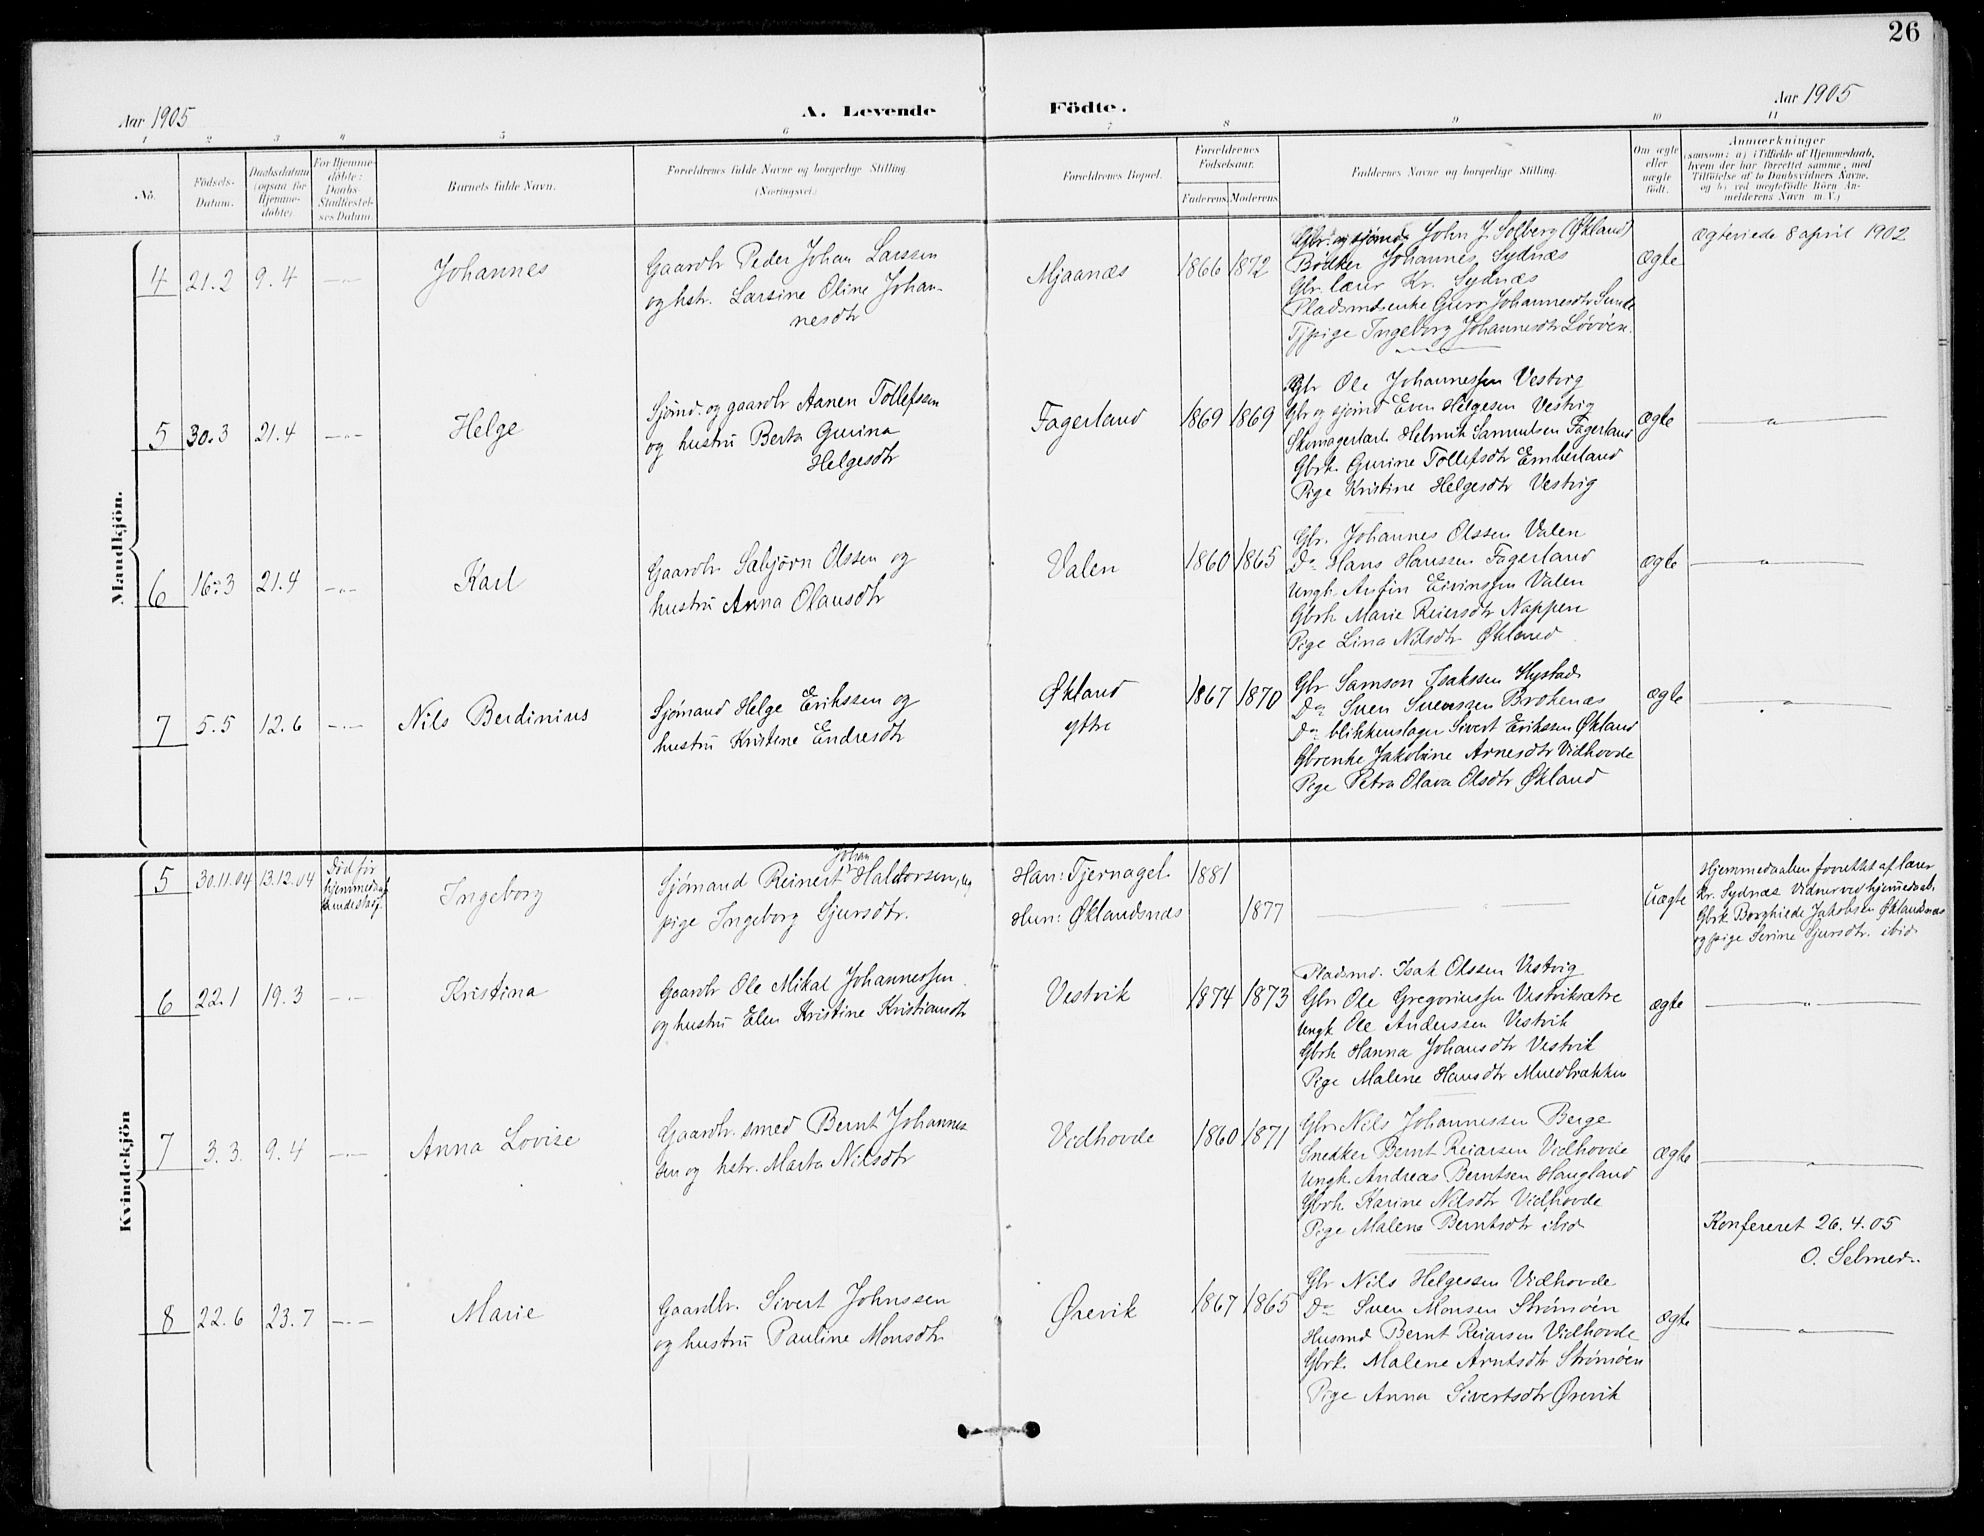 26
Aar 1905
A. Levende Födte.
Aar 1905
1 2 3 4 5 6 7 8 9 10 11
No.
Födsels-Datum.
Daabsdatum (ogsaa for Hjemme-döbte).
For Hjemme-döbte: Daabs-Stadfæstel-ses Datum.
Barnets fulde Navn.
Forældrenes fulde Navne og borgerlige Stilling.
(Næringsvei.)
Forældrenes Bopæl.
Forældrenes Födselsaar.
Faderens. Moderens.
Faddernes Navne og borgerlige Stilling.
Om ægte eller uægte födt.
Anmærkninger
(saasom: a) i Tilfælde af Hjemmedaab,
hvem der har forrettet samme, med
Tilföielse af to Daabsvidners Navne,
og b) ved uægtefödte Börn An-
melderens Navn m. V.)
Mandkjön.
4 21.2 9.4 —"— Johannes
Gaardbr Peder Johan Larssen
og hstr. Larsine Oline Johan-
nesdtr
Mjaanæs
1866 1872
Gbr. og sjømd. John J. Solberg (Økland)
Bødker Johannes Sydnæs
Gbr. lærer Kr. Sydnæs
Pladsmdsenke Guro Johannesdtr Sunde
Tjpige Ingeborg Johannesdtr Løvøen.
ægte
Ægteviede 8 april 1902
5 30.3 21.4 —"— Helge
Sjømd. og gaardbr Aanen Tollefssen
og hustru Berta Gurina
Helgesdtr
Fagerland
1869 1869
Gbr Ole Johannessen Vestvig
Gbr og sjømd Even Helgesen Vestvig
Helmik Samuelsen Fagerland
Gbrk. Gurine Tollefsdtr Emberland
Pige Kristine Helgesdtr Vestvig
ægte
—"—
6 16.3 21.4 —"— Karl
Gaardbr. Sæbjørn Olssen og
hustru Anna Olausdtr
Valen
1860 1865
Gbr. Johannes Olssen Valen
Do Hans Hanssen Fagerland
Ungk. Anfin Eivinssen Valen
Gbrk Marie Reiersdtr Nappen
Pige Lina Nilsdtr Økland
ægte
—"—
7 5.5 12.6 —"— Nils Berdinius
Sjømand Helge Erikssen og
hustru Kristine Endresdtr
Økland
ytre
1867 1870
Gbr Samson Isakssen Hystad
Do Sven Svenssen Brokenæs
Do blikkenslager Sivert Erikssen Økland
Gbrenke Jakobine Arnesdtr Vidhovde
Pige Petra Olava Olsdtr Økland
ægte
—"—
Kvindekjön
5 30.11.04 13.12.04
Død før
Ingeborg
Johan
Sjømand Reinert Haldorsen, og
pige Ingeborg Sjursdtr.
Han: Tjernagel
Hun: Øklandsnæs
1881
1877
—"—
uægte
Hjemmedaaben forrettet af lærer
Kr. Sydnæs Vidner ved hjemmedaab.
Gbrk. Borghilde Jakobsen Øklandsnæs
og pige Serine Sjursdtr. ibid.
6 22.1 19.3 —"— Kristina
Gaardbr Ole Mikal Johannessen
og hustru Elen Kristine Kristiansdtr
Vestvik
1874 1873
Pladsmd. Isak Olssen Vestvig
Gbr Ole Gregoriussen Vestviksætre
Ungk Ole Anderssen Vestvik
Gbrk Hanna Johansdtr Vestvik
Pige Malene Hansdtr
ægte
—"—
7 3.3. 9.4 —"— Anna Lovise
Gaardbr. smed Bernt Johannes
sen og hstr. Marta Nilsdtr
Vidhovde
1860 1871
Gbr Nils Johannessen Berge
Snedker Bernt Reiarsen Vidhovde
Ungk. Andreas Berntsen Haugland
Gbrk Karine Nilsdtr Vidhovde
Pige Malene Berntsdtr ibid
ægte
—"—
Konfereret 26.4.05
O. Selmer.
8 22.6 23.7 —"— Marie
Gaardbr. Sivert Johnssen
og hustru Pauline Monsdtr
Ørevik
1867 1865
Gbr Nils Helgessen Vidhovde
Do Sven Monsen Strømøen
Husmd Bernt Reiarsen Vidhovde
Gbrk. Malene Arntsdtr Strømøen
Pige Anna Sivertsdtr Ørevik
ægte
—"—